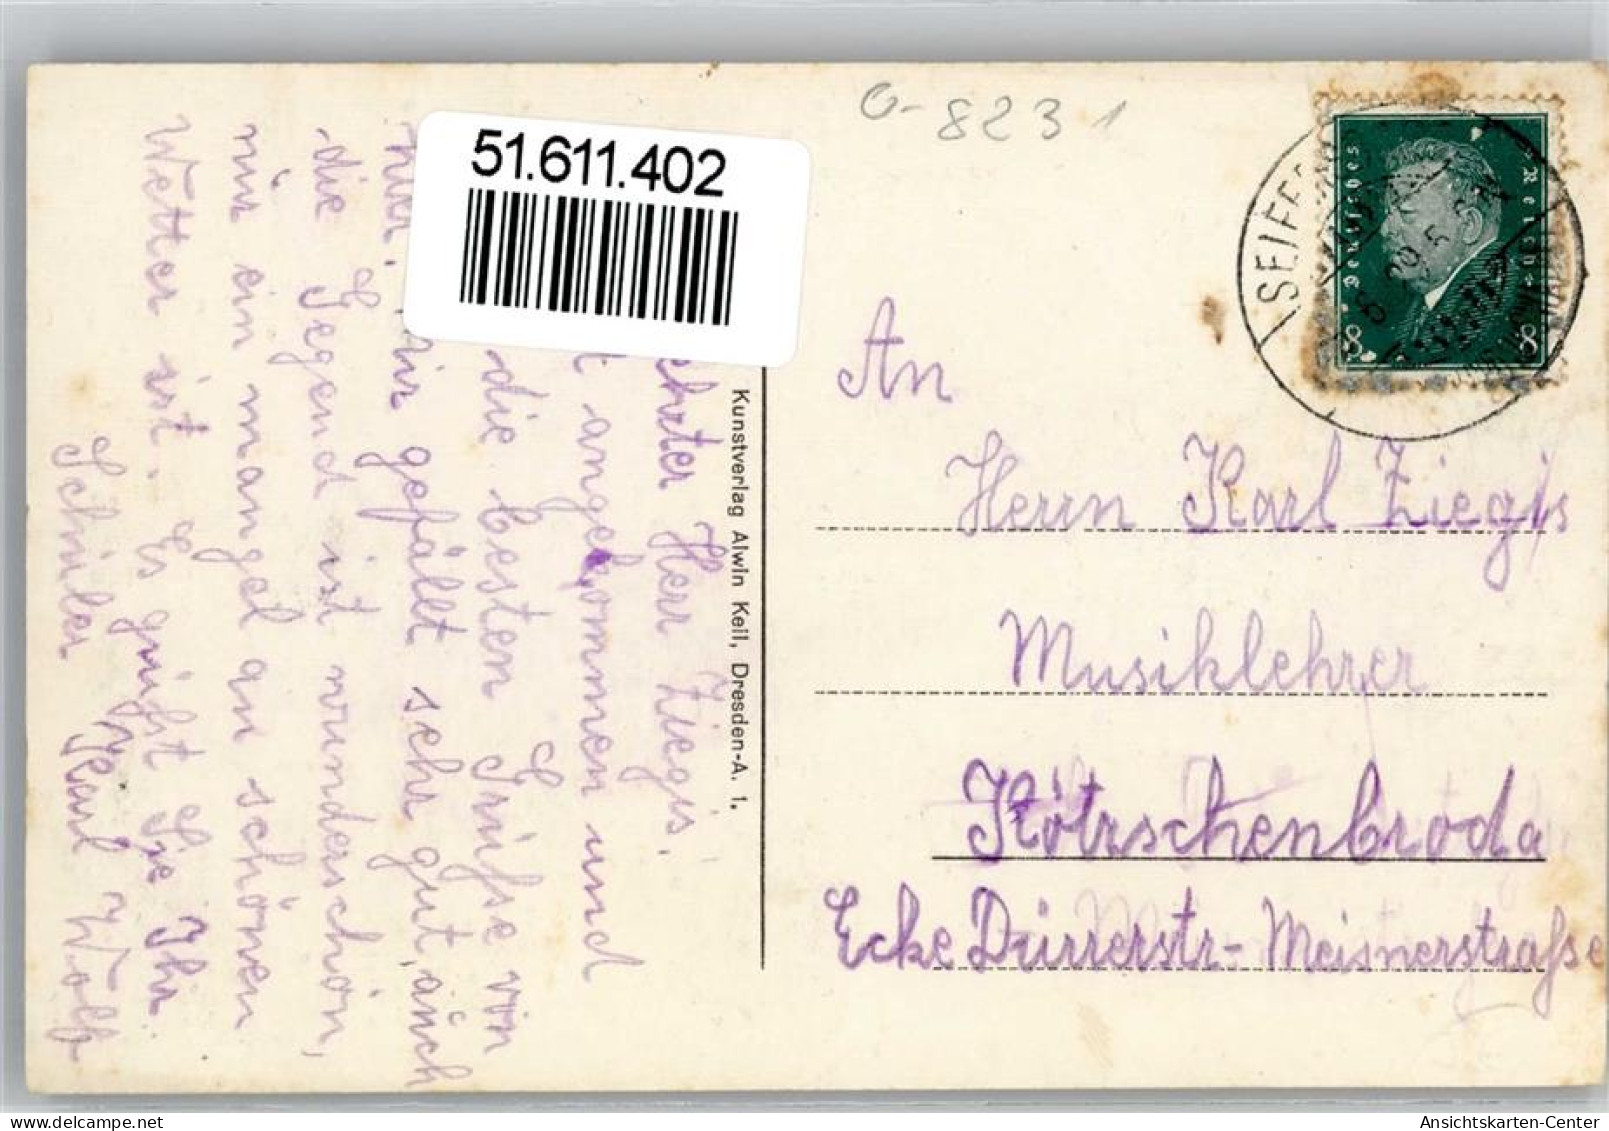 51.611.402
G-8231
Deutsches Reich
8 8
SEIFE
ehrter Herr Ziegis.
t angekommen und
die besten Grüße von
hier. Mir gefällt sehr gut, auch
die Gegend ist wunderschön,
nur ein mangel an schönen
Wetter ist. Es grüßt Sie Ihr
Schüler Karl Wolf
Kunstverlag Alwin Keil, Dresden-A. 1.
An
Herrn Karl Ziegis
Musiklehrer
Kötzschenbroda
Ecke Dürrerstr- Meisnerstraße
Ansichtskarten-Center